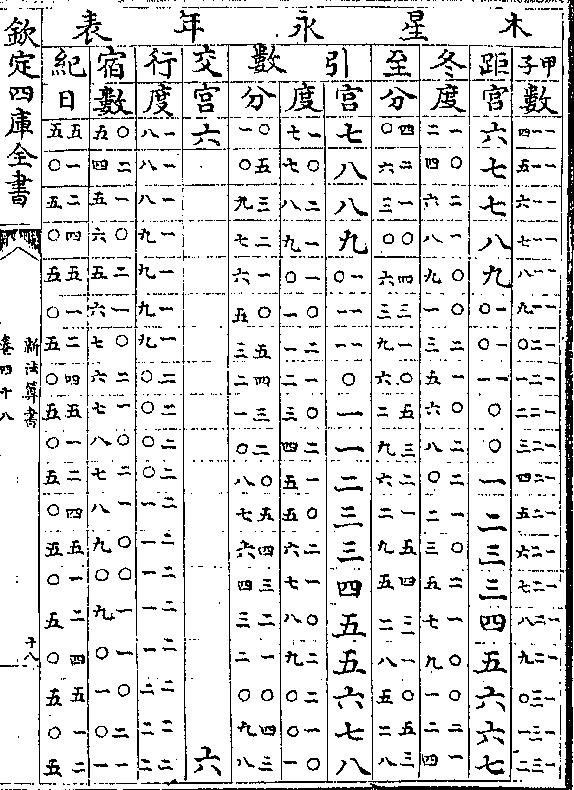 木星永年表
甲子數 距冬至 宮度分 引數 宮度分 交宮 行度 宿數 紀日
一一四 六 一二 四〇 七 一七 〇一 六 一八 〇五 五五
一一五 七 〇四 二六 八 〇七 五〇 一八 二四 一〇
一一六 七 二六 一三 八 二八 三九 一八 一五 二五
一一七 八 一八 〇〇 九 一九 二七 一九 〇六 四〇
一一八 九 〇九 四六 一〇 一〇 一六 一九 二五 五五
一一九 一〇 〇一 三三 一一 〇一 〇五 一九 一六 一〇
一二〇 一〇 二三 一九 一一 二一 五三 一九 〇七 二五
一二一 一一 一五 〇六 〇 一二 四二 二〇 二六 四〇
一二二 〇 〇六 五二 一 〇三 三一 二〇 一七 五五
一二三 〇 二八 三九 一 二四 二〇 二〇 〇八 一〇
一二四 一 二〇 二六 二 一五 〇八 二〇 二七 二五
一二五 二 一二 一二 三 〇五 五七 二一 一八 四〇
一二六 三 〇三 五九 三 二六 四六 二一 〇九 五五
一二七 三 二五 四五 四 一七 三四 二一 〇〇 一〇
一二八 四 一七 三二 五 〇八 二三 二一 一九 二五
一二九 五 〇九 一八 五 二九 一二 二一 一〇 四〇
一三〇 六 〇一 〇五 六 二〇 〇〇 二二 〇一 五五
一三一 六 二二 五二 七 一〇 四九 二二 二〇 一〇
一三二 七 一四 三八 八 〇一 三八 六 二二 一一 二五
欽定四庫全書
新法算書
卷四十八
十八